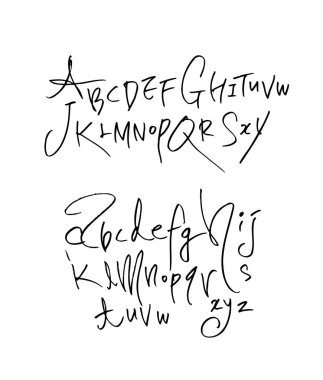 ABCDEFGHITUVW
JKLMNOPQRSXY
abcdefghij
klmnopqrs
tuvwxyz